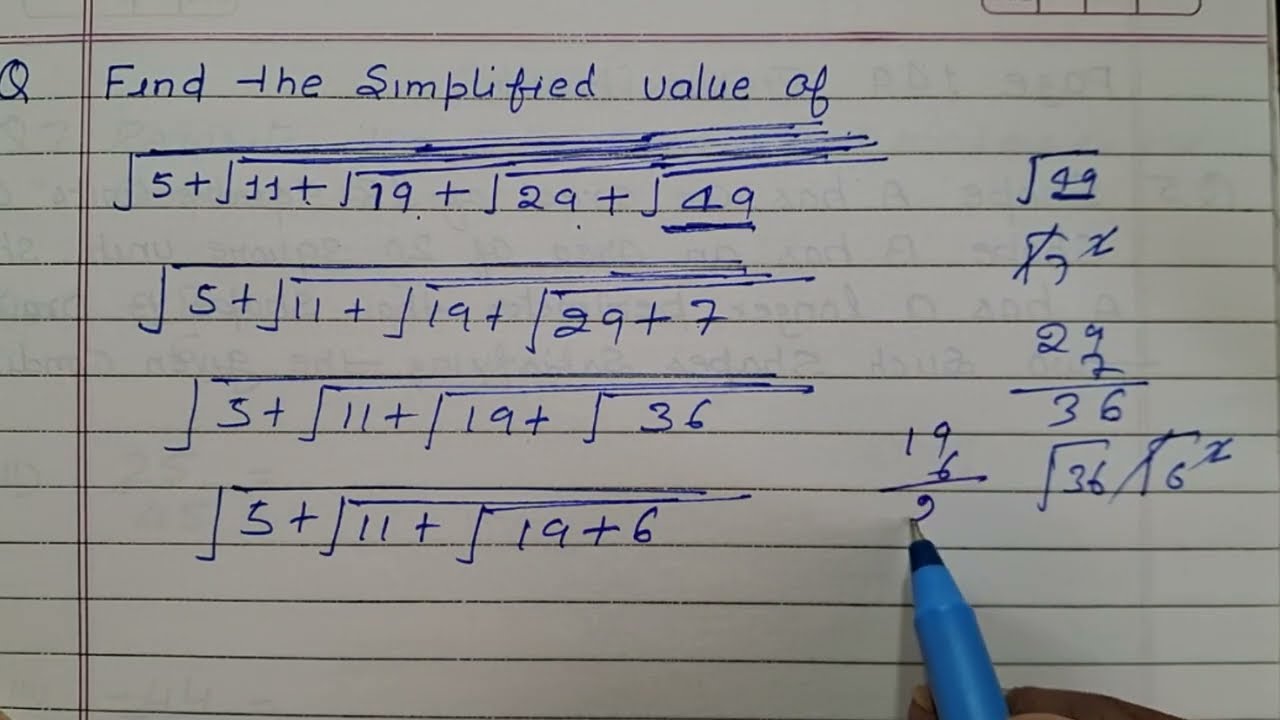 Q Find the Simplified value of
√5+√11+√19+√29+√49
√5+√11+√19+√29+7
√5+√11+√19+√36
√5+√11+√19+6
√49
√7 x
29
7
36
19
6
2
√36 / √6 x